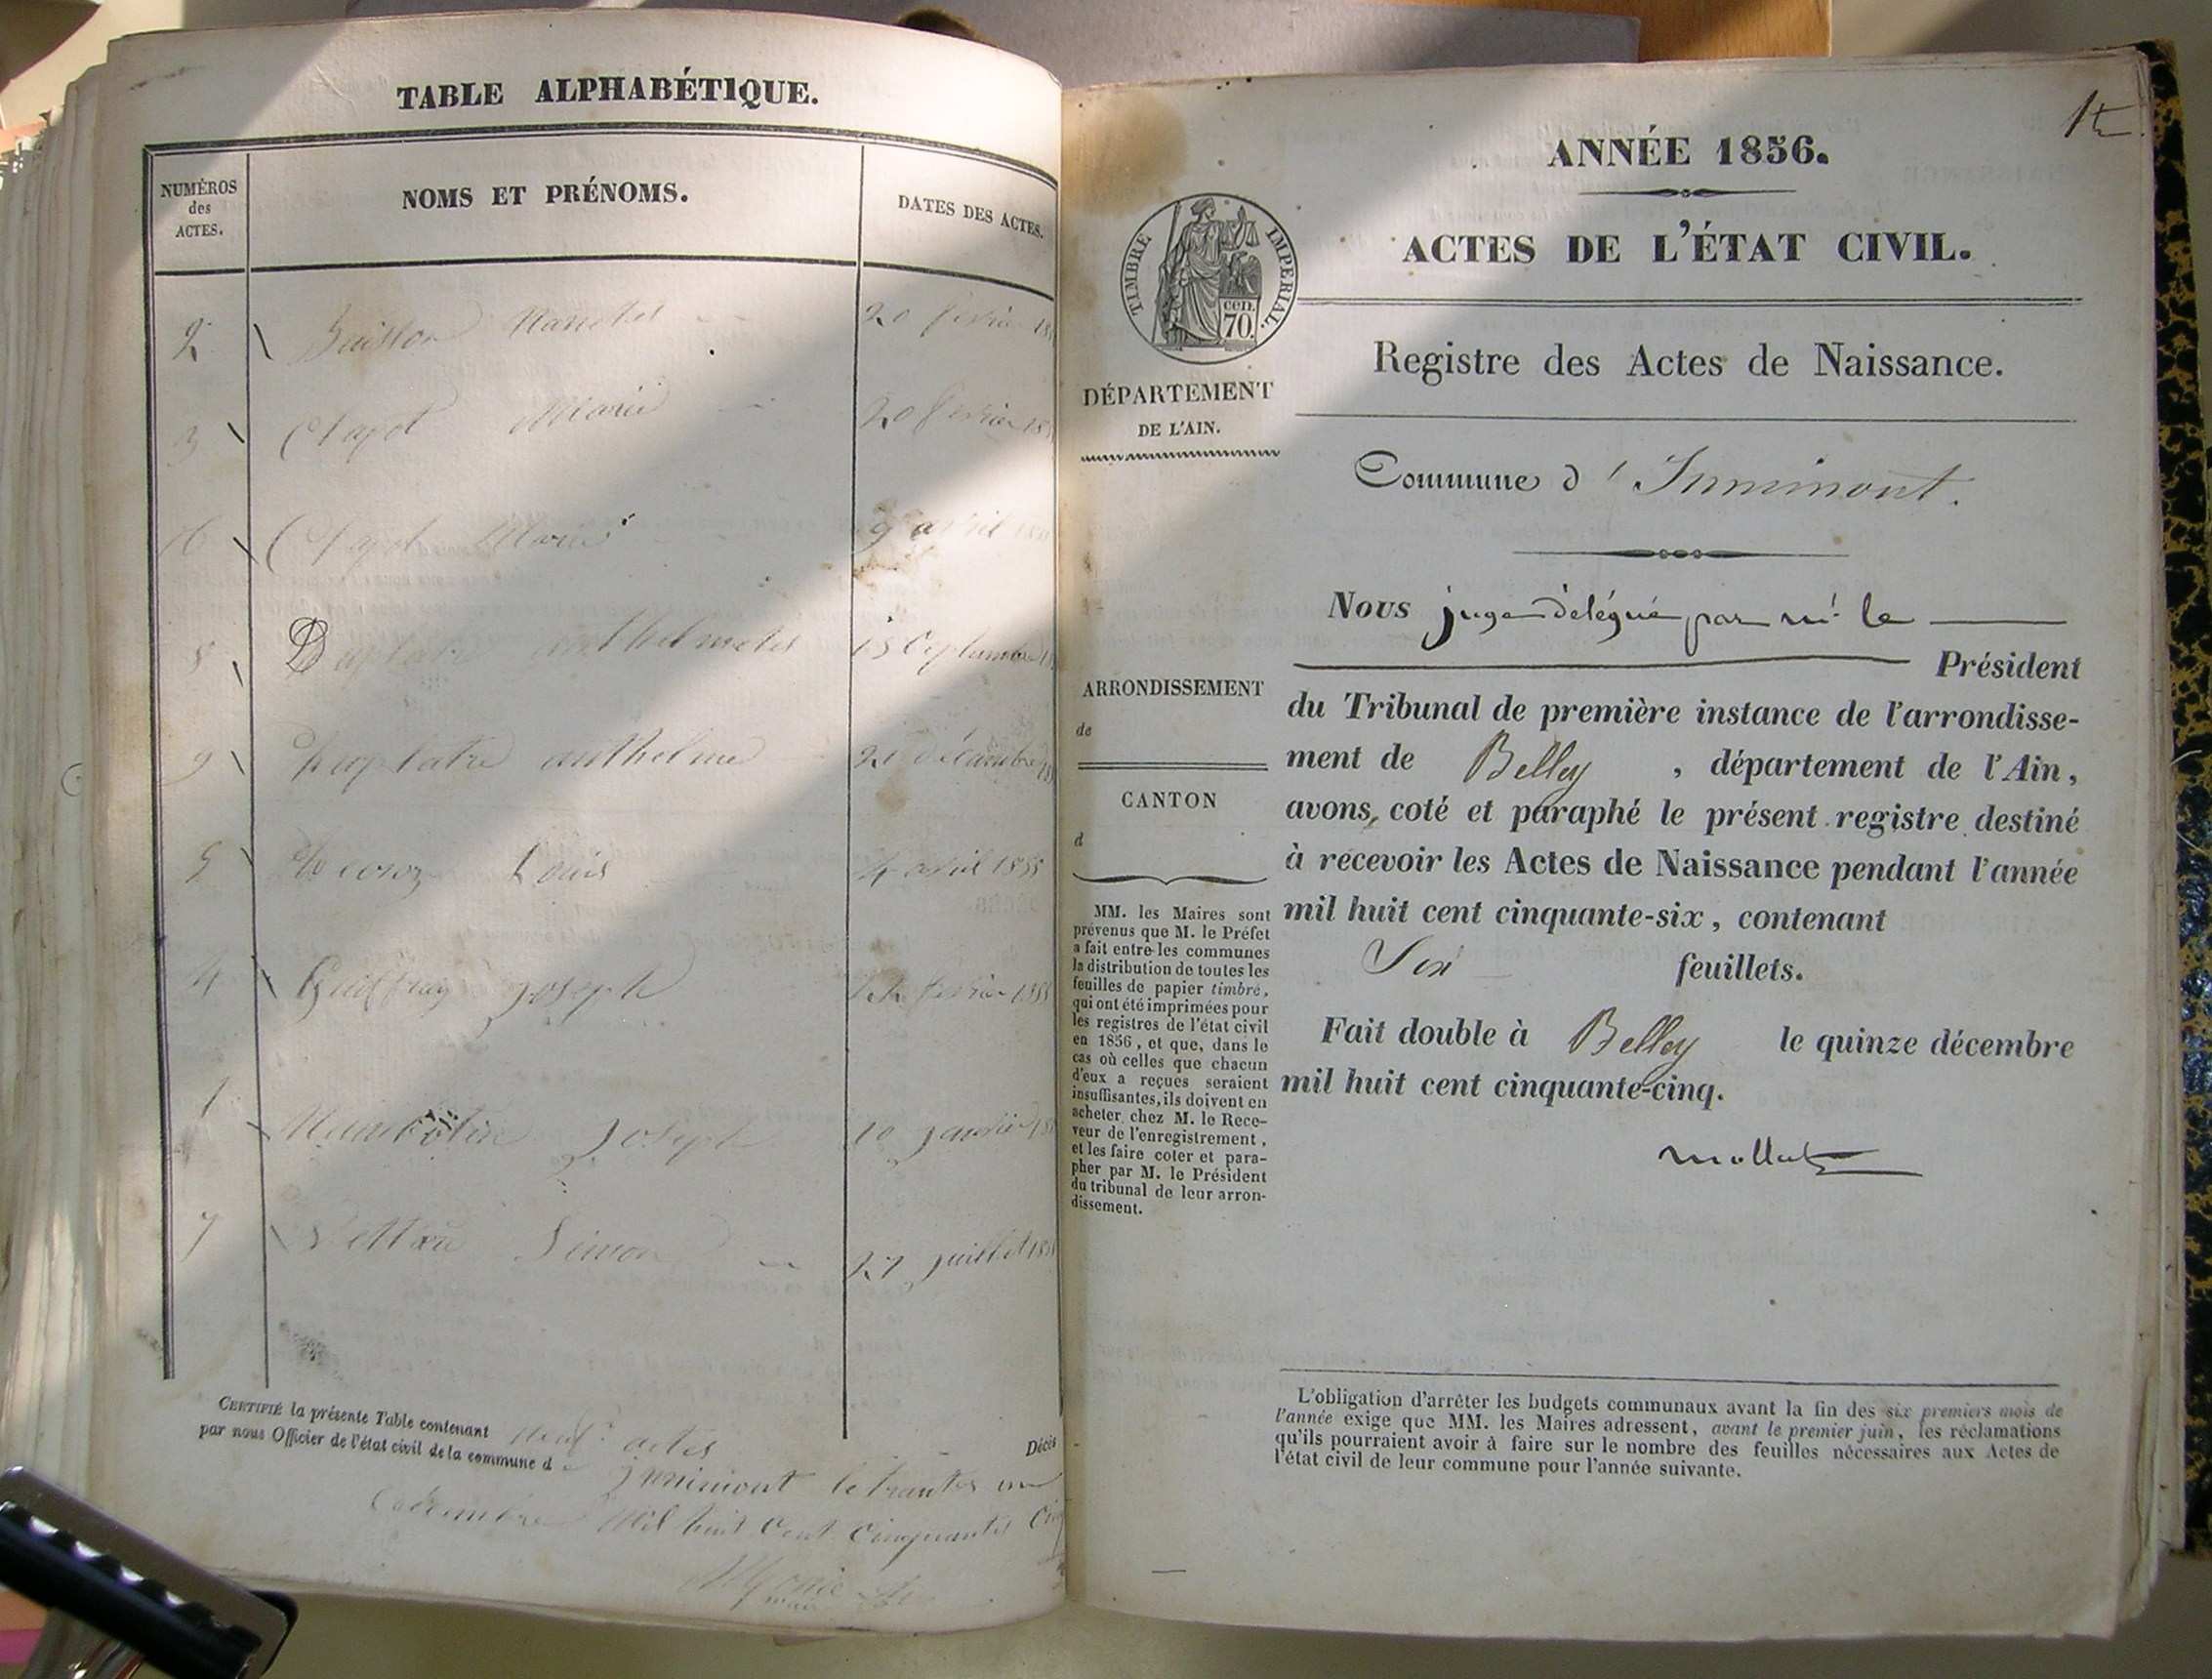 TABLE ALPHABÉTIQUE.
NUMÉROS
des
ACTES.
NOMS ET PRÉNOMS.
DATES DES ACTES.
2 Nanette 20 février
3 Clapot Marie 20 février
6 Clapot Marie 9 avril
8 Duplatre anthelmette
9 Duplatre anthelme 21 décembre
5 Louis 4 avril 1855
4 Guiffray Joseph 22 février 1855
1 Joseph 10 janvier
7 Simon 27 juillet
CERTIFIÉ la présente Table contenant neuf actes
par nous Officier de l'état civil de la commune d
Décès
Inimont le trente un
Décembre Mil huit Cent Cinquante
1er
ANNÉE 1856.
ACTES DE L'ÉTAT CIVIL.
TIMBRE IMPERIAL.
CEN.
70.
Registre des Actes de Naissance.
DÉPARTEMENT
DE L'AIN.
Commune d'Innimont.
Nous juge délégué par mr le
Président
ARRONDISSEMENT
de
CANTON
d
du Tribunal de première instance de l'arrondisse-
ment de Belley, département de l'Ain,
avons, coté et paraphé le présent registre destiné
à recevoir les Actes de Naissance pendant l'année
mil huit cent cinquante-six, contenant
Six feuillets.
Fait double à Belley le quinze décembre
mil huit cent cinquante-cinq.
MM. les Maires sont
prévenus que M. le Préfet
a fait entre les communes
la distribution de toutes les
feuilles de papier timbré,
qui ont été imprimées pour
les registres de l'état civil
en 1856, et que, dans le
cas où celles que chacun
d'eux a reçues seraient
insuffisantes, ils doivent en
acheter chez M. le Rece-
veur de l'enregistrement,
et les faire coter et para-
pher par M. le Président
du tribunal de leur arron-
dissement.
L'obligation d'arrêter les budgets communaux avant la fin des six premiers mois de
l'année exige que MM. les Maires adressent, avant le premier juin, les réclamations
qu'ils pourraient avoir à faire sur le nombre des feuilles nécessaires aux Actes de
l'état civil de leur commune pour l'année suivante.